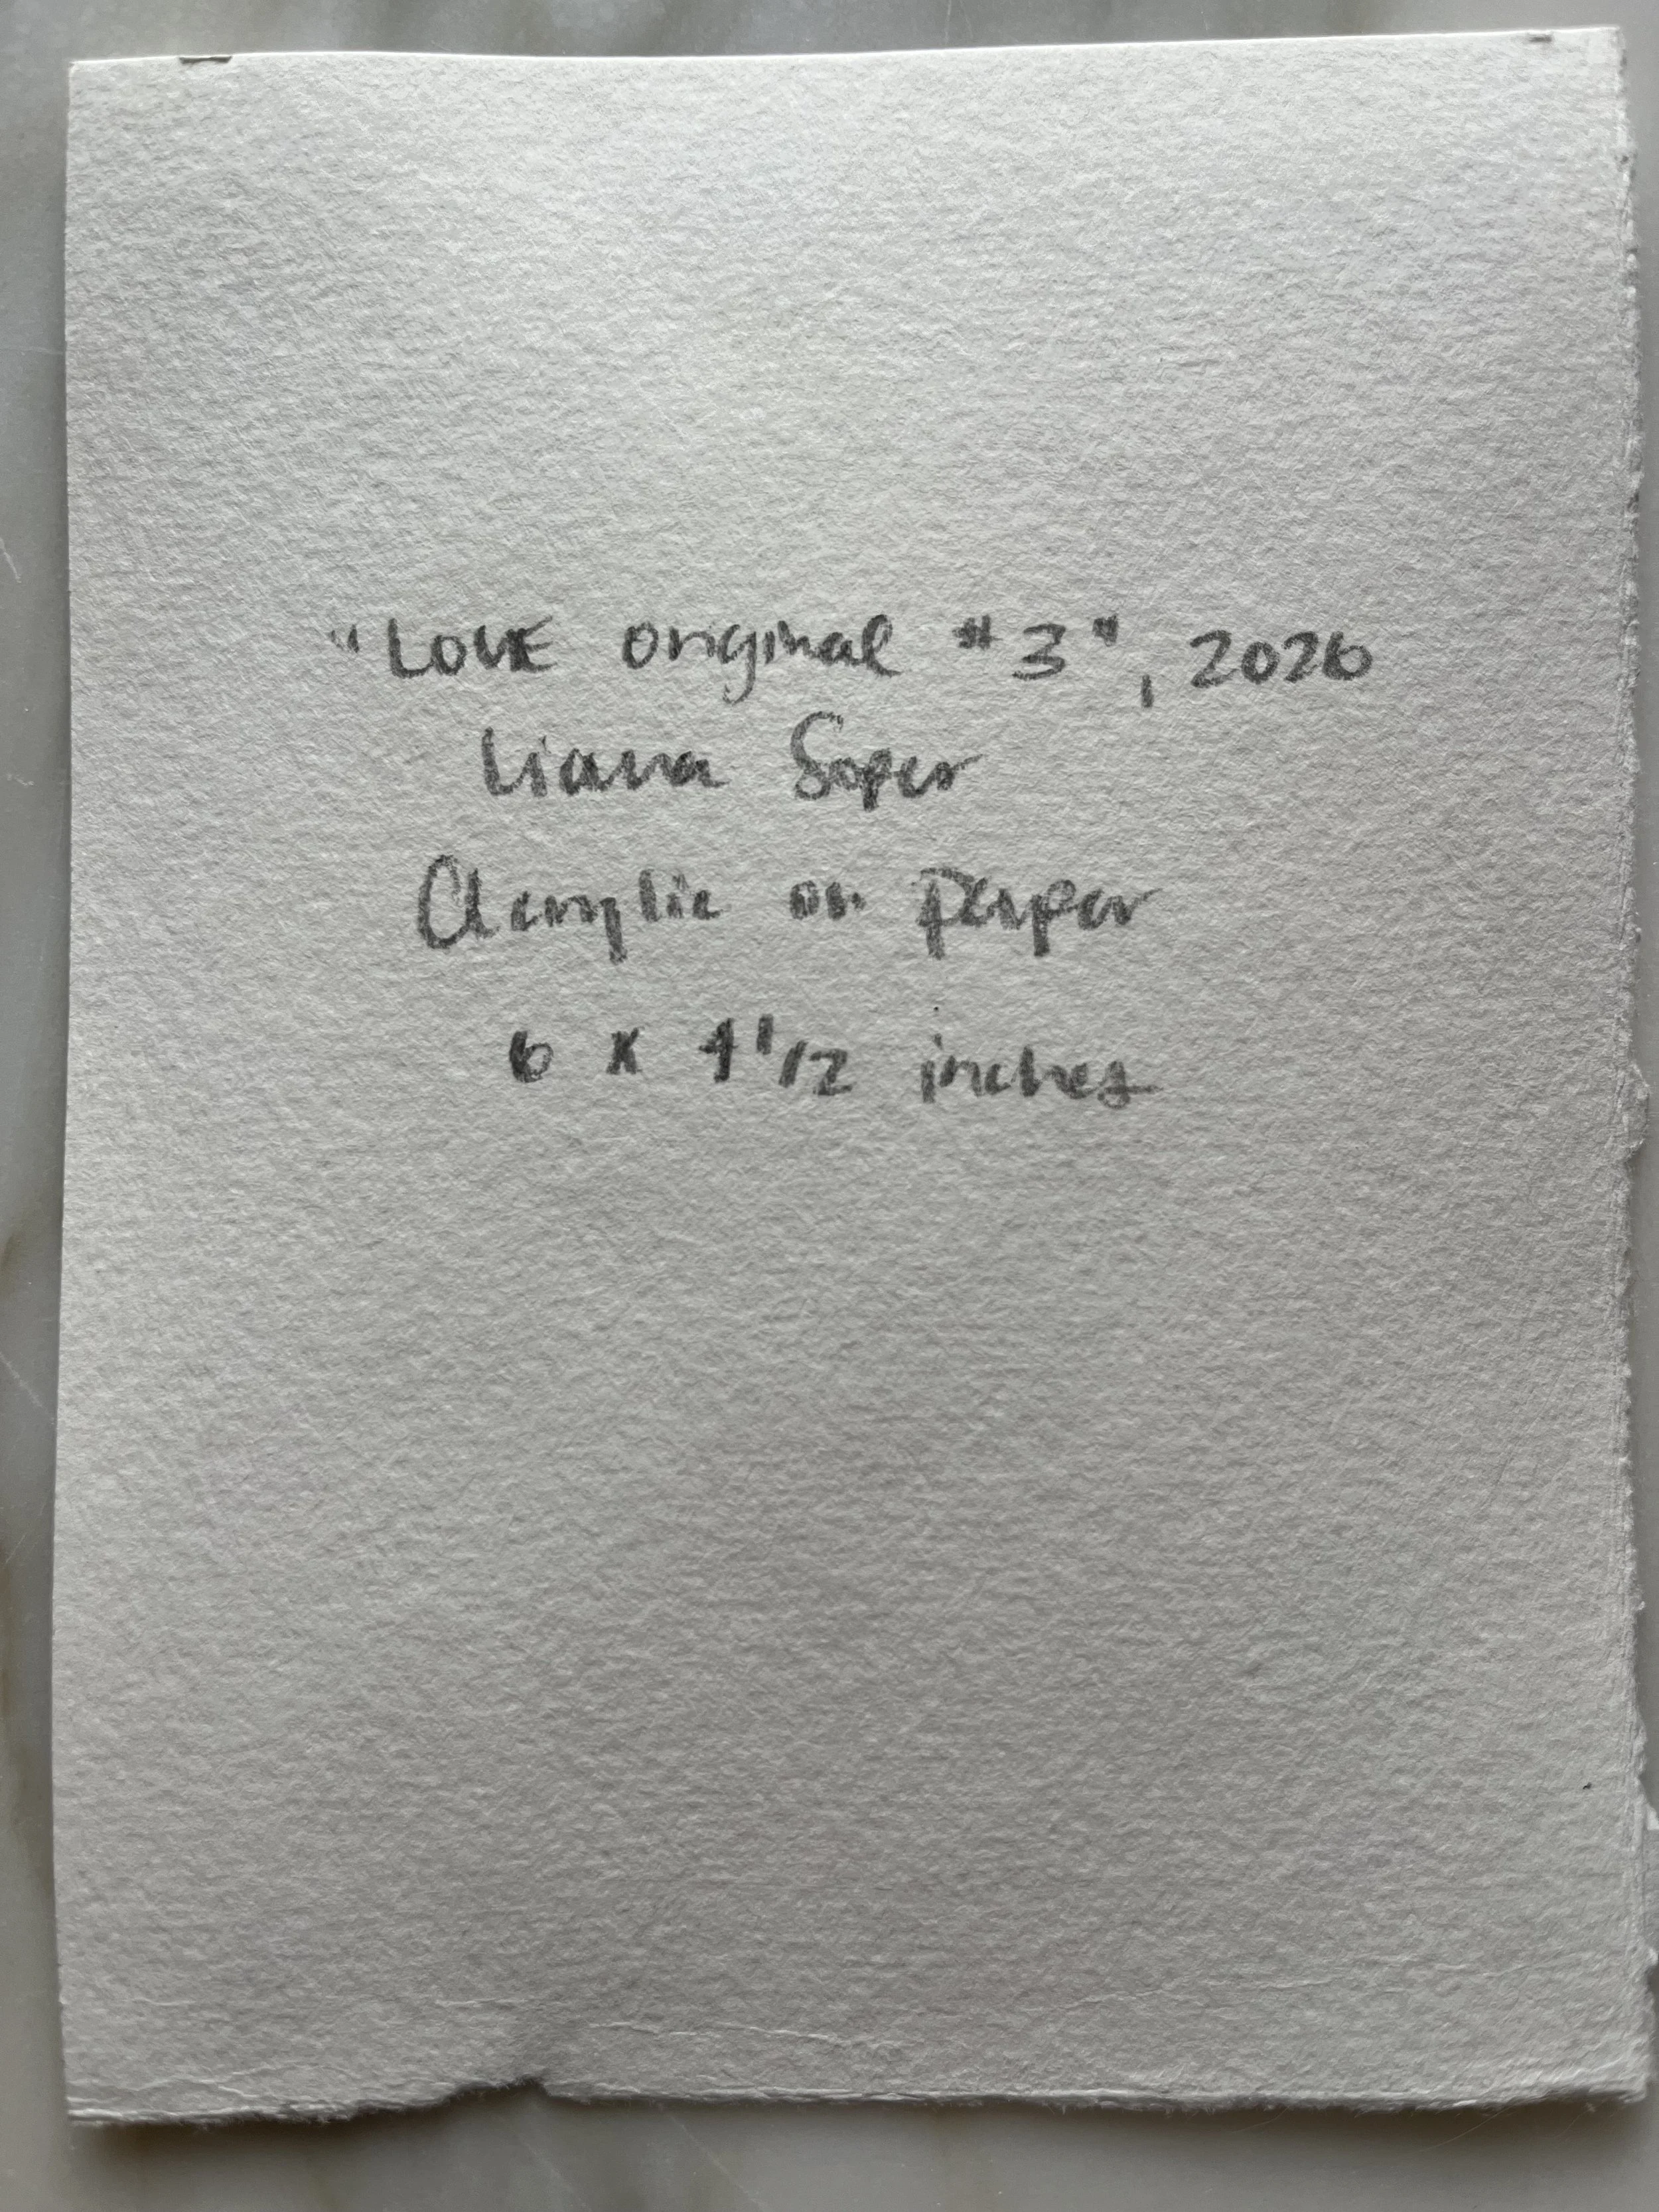 "LOVE original #3", 2026
Liana Soper
Acrylic on Paper
6 x 4 1/2 inches